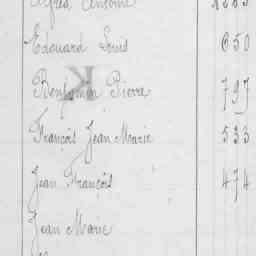 Alfred Antoine
Edouard Louis 650
Benjamin Pierre 797
François Jean Marie 533
Jean François 474
Jean Marie